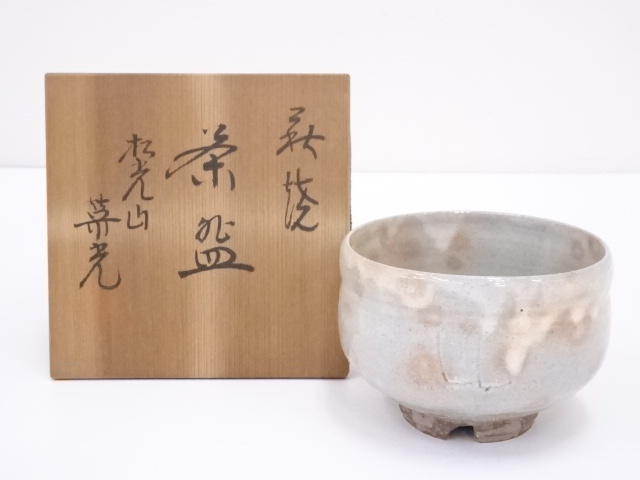 萩焼
茶盌
松光山
栄光